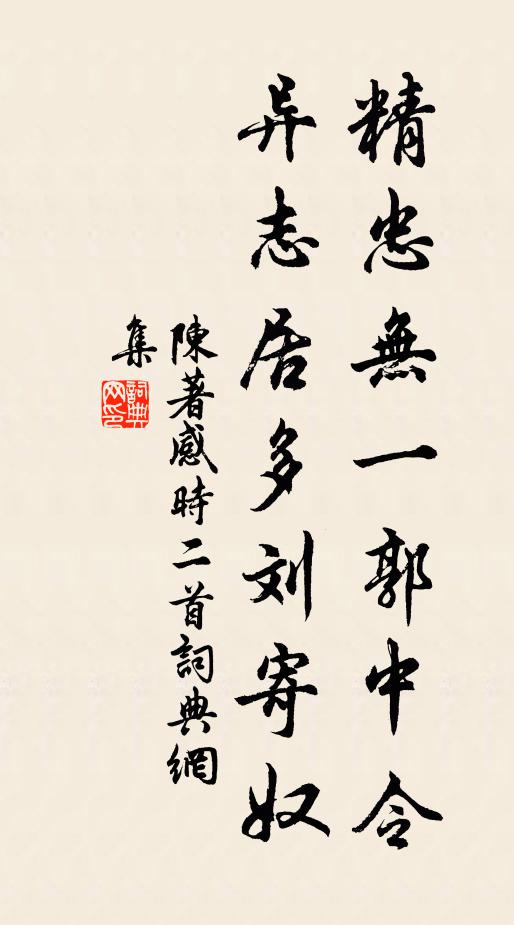 精忠無一郭中令
异志居多刘寄奴
陳著感時二首詞典網
集
詞典网印